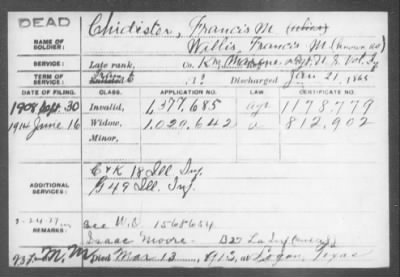 DEAD
NAME OF SOLDIER: Chidister, Francis M. (alias)
Willis, Francis M.
SERVICE: Late rank, Co. K, Regt. U.S. Vol. Inf
TERM OF SERVICE: Enlisted , 18 Discharged Jan 21, 1865
DATE OF FILING. CLASS. APPLICATION NO. LAW. CERTIFICATE NO.
1908 Sept. 30 Invalid, 1,377,685 1178779
1914 June 16 Widow, 1,029,642 812,902
Minor,
ADDITIONAL SERVICES: C & K 18 Ill. Inf.
G 49 Ill. Inf.
REMARKS: See W.O. 1568654
Isaac Moore
Died Mar 13, 1912, at Logan, Texas